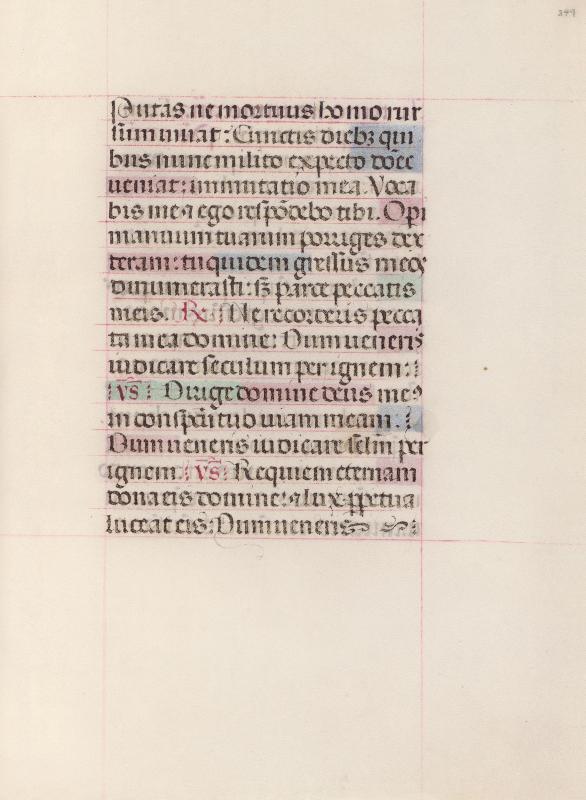 249
Putas ne mortuus homo rur
sum uiuat: Cunctis diebꝫ qui
bus nunc milito expecto donec
ueniat: immutatio mea. Voca
bis me ⁊ ego respōdebo tibi. Operi
manuum tuarum porriges dex
teram: tu quidem gressus meos
dinumerasti: sꝫ parce peccatis
meis. R̄. Ne recorderis pecca
ta mea domine: Dum ueneris
iudicare seculum per ignem:
v̄s: Dirige domine deus meꝰ
in conspectu tuo uiam meam.
Dum ueneris iudicare sclm̄ per
ignem. v̄s: Requiem eternam
dona eis domine: ⁊ lux ꝑpetua
luceat eis: Dum ueneris